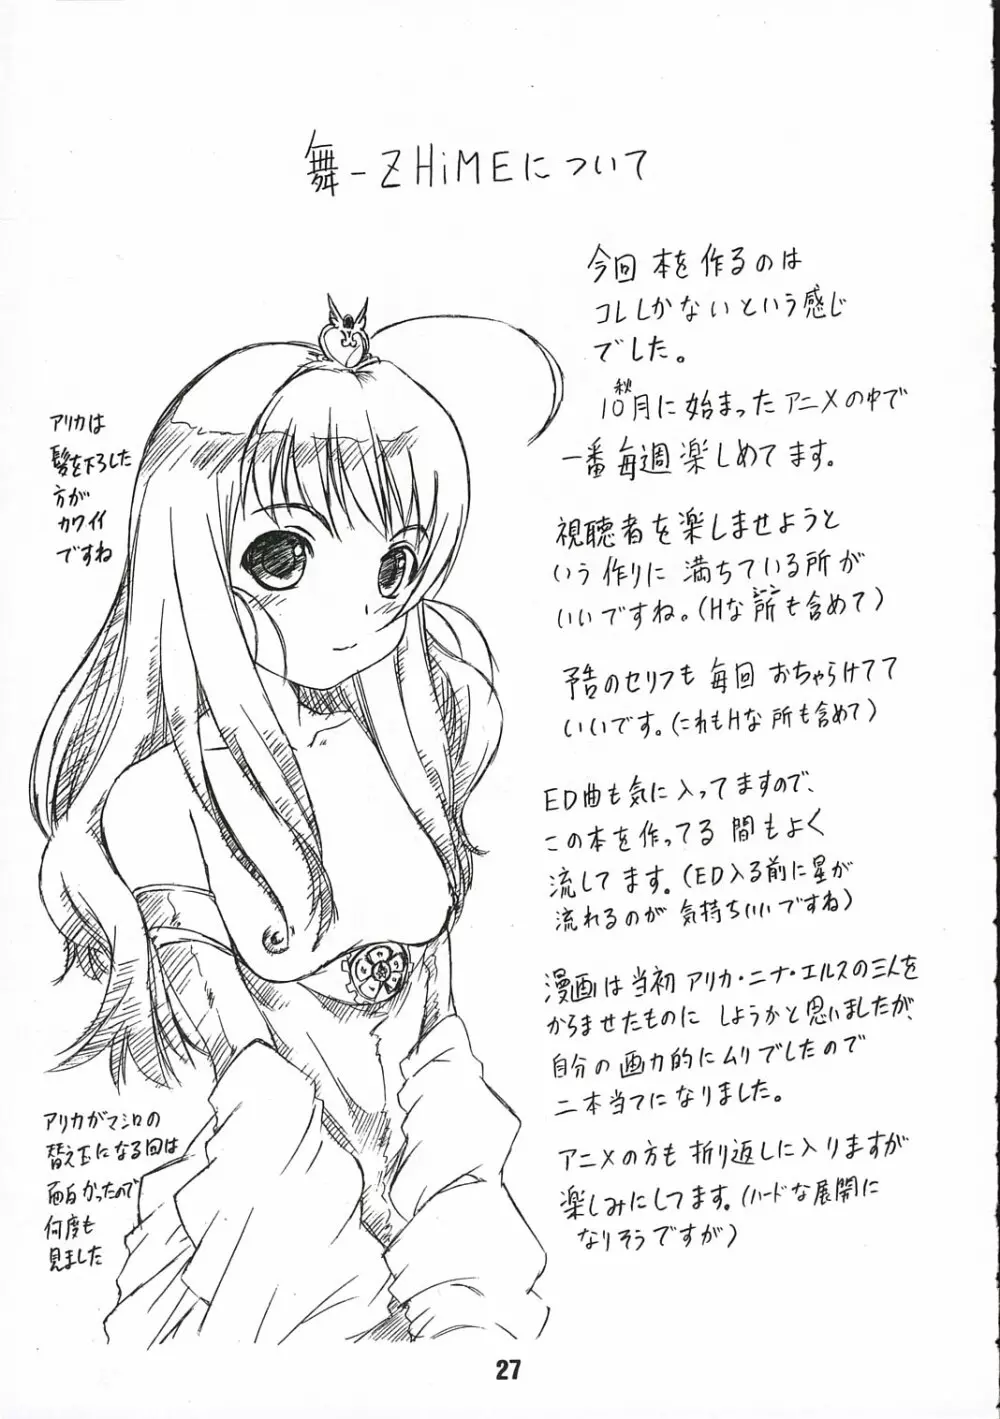 舞-ZHiMEについて
今回 本を作るのは
コレしかないという感じ
でした。
秋
10月に始まったアニメの中で
一番毎週楽しめてます。
視聴者を楽しませようと
いう作りに満ちている所が
いいですね。(Hな所も含めて)
予告のセリフも毎回おちゃらけてて
いいです。(これもHな所も含めて)
ED曲も気に入ってますので、
この本を作ってる間もよく
流してます。(ED入る前に星が
流れるのが気持ちいいですね)
漫画は当初アリカ・ニナ・エルスの三人を
からませたものにしようかと思いましたが、
自分の画力的にムリでしたので
二本当てになりました。
アニメの方も折り返しに入りますが
楽しみにしてます。(ハードな展開に
なりそうですが)
アリカは
髪を下ろした
方が
カワイイ
ですね
アリカがマシロの
替え玉になる回は
面白かったので
何度も
見ました
27